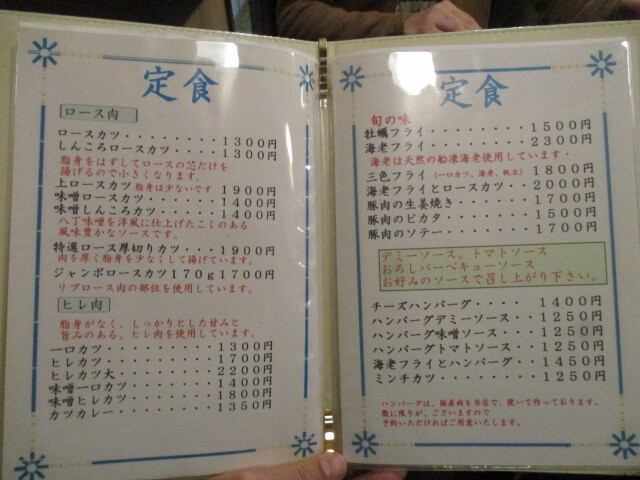 定食
ロース肉
ロースカツ・・・・・・・・・1300円
しんころロースカツ・・・・1300円
脂身をはずしてロースの芯だけを
揚げるので小さくなります。
上ロースカツ 脂身は少ないです 1900円
味噌ロースカツ・・・・・・1400円
味噌しんころカツ・・・・・1400円
八丁味噌を洋風に仕上げたこくのある
風味豊かなソースです。
特選ロース厚切りカツ・・・1900円
肉を厚く脂身を少なくして揚げています。
ジャンボロースカツ170g1700円
リブロース肉の部位を使用しています。
ヒレ肉
脂身がなく、しっかりとした甘みと
旨みのある、ヒレ肉を使用しています。
一口カツ・・・・・・・・・1300円
ヒレカツ・・・・・・・・・1700円
ヒレカツ大・・・・・・・・2200円
味噌一口カツ・・・・・・・1400円
味噌ヒレカツ・・・・・・・1800円
カツカレー・・・・・・・・1350円
定食
旬の味
牡蠣フライ・・・・・・・・1500円
海老フライ・・・・・・・・2300円
海老は天然の船凍海老使用しています・
三色フライ (一口カツ、海老、帆立) 1800円
海老フライとロースカツ・・2000円
豚肉の生姜焼き・・・・・・1700円
豚肉のピカタ・・・・・・・1500円
豚肉のソテー・・・・・・・1700円
デミーソース、トマトソース
おろしバーベキューソース
お好みのソースで召し上がり下さい。
チーズハンバーグ・・・・ 1400円
ハンバーグデミーソース・・1250円
ハンバーグ味噌ソース・・・1250円
ハンバーグトマトソース・・1250円
海老フライとハンバーグ・・1450円
ミンチカツ・・・・・・・・1250円
ハンバーグは、国産肉を当店で、挽いて作っております。
数に限りが、ございますので
予約いただければご用意いたします。